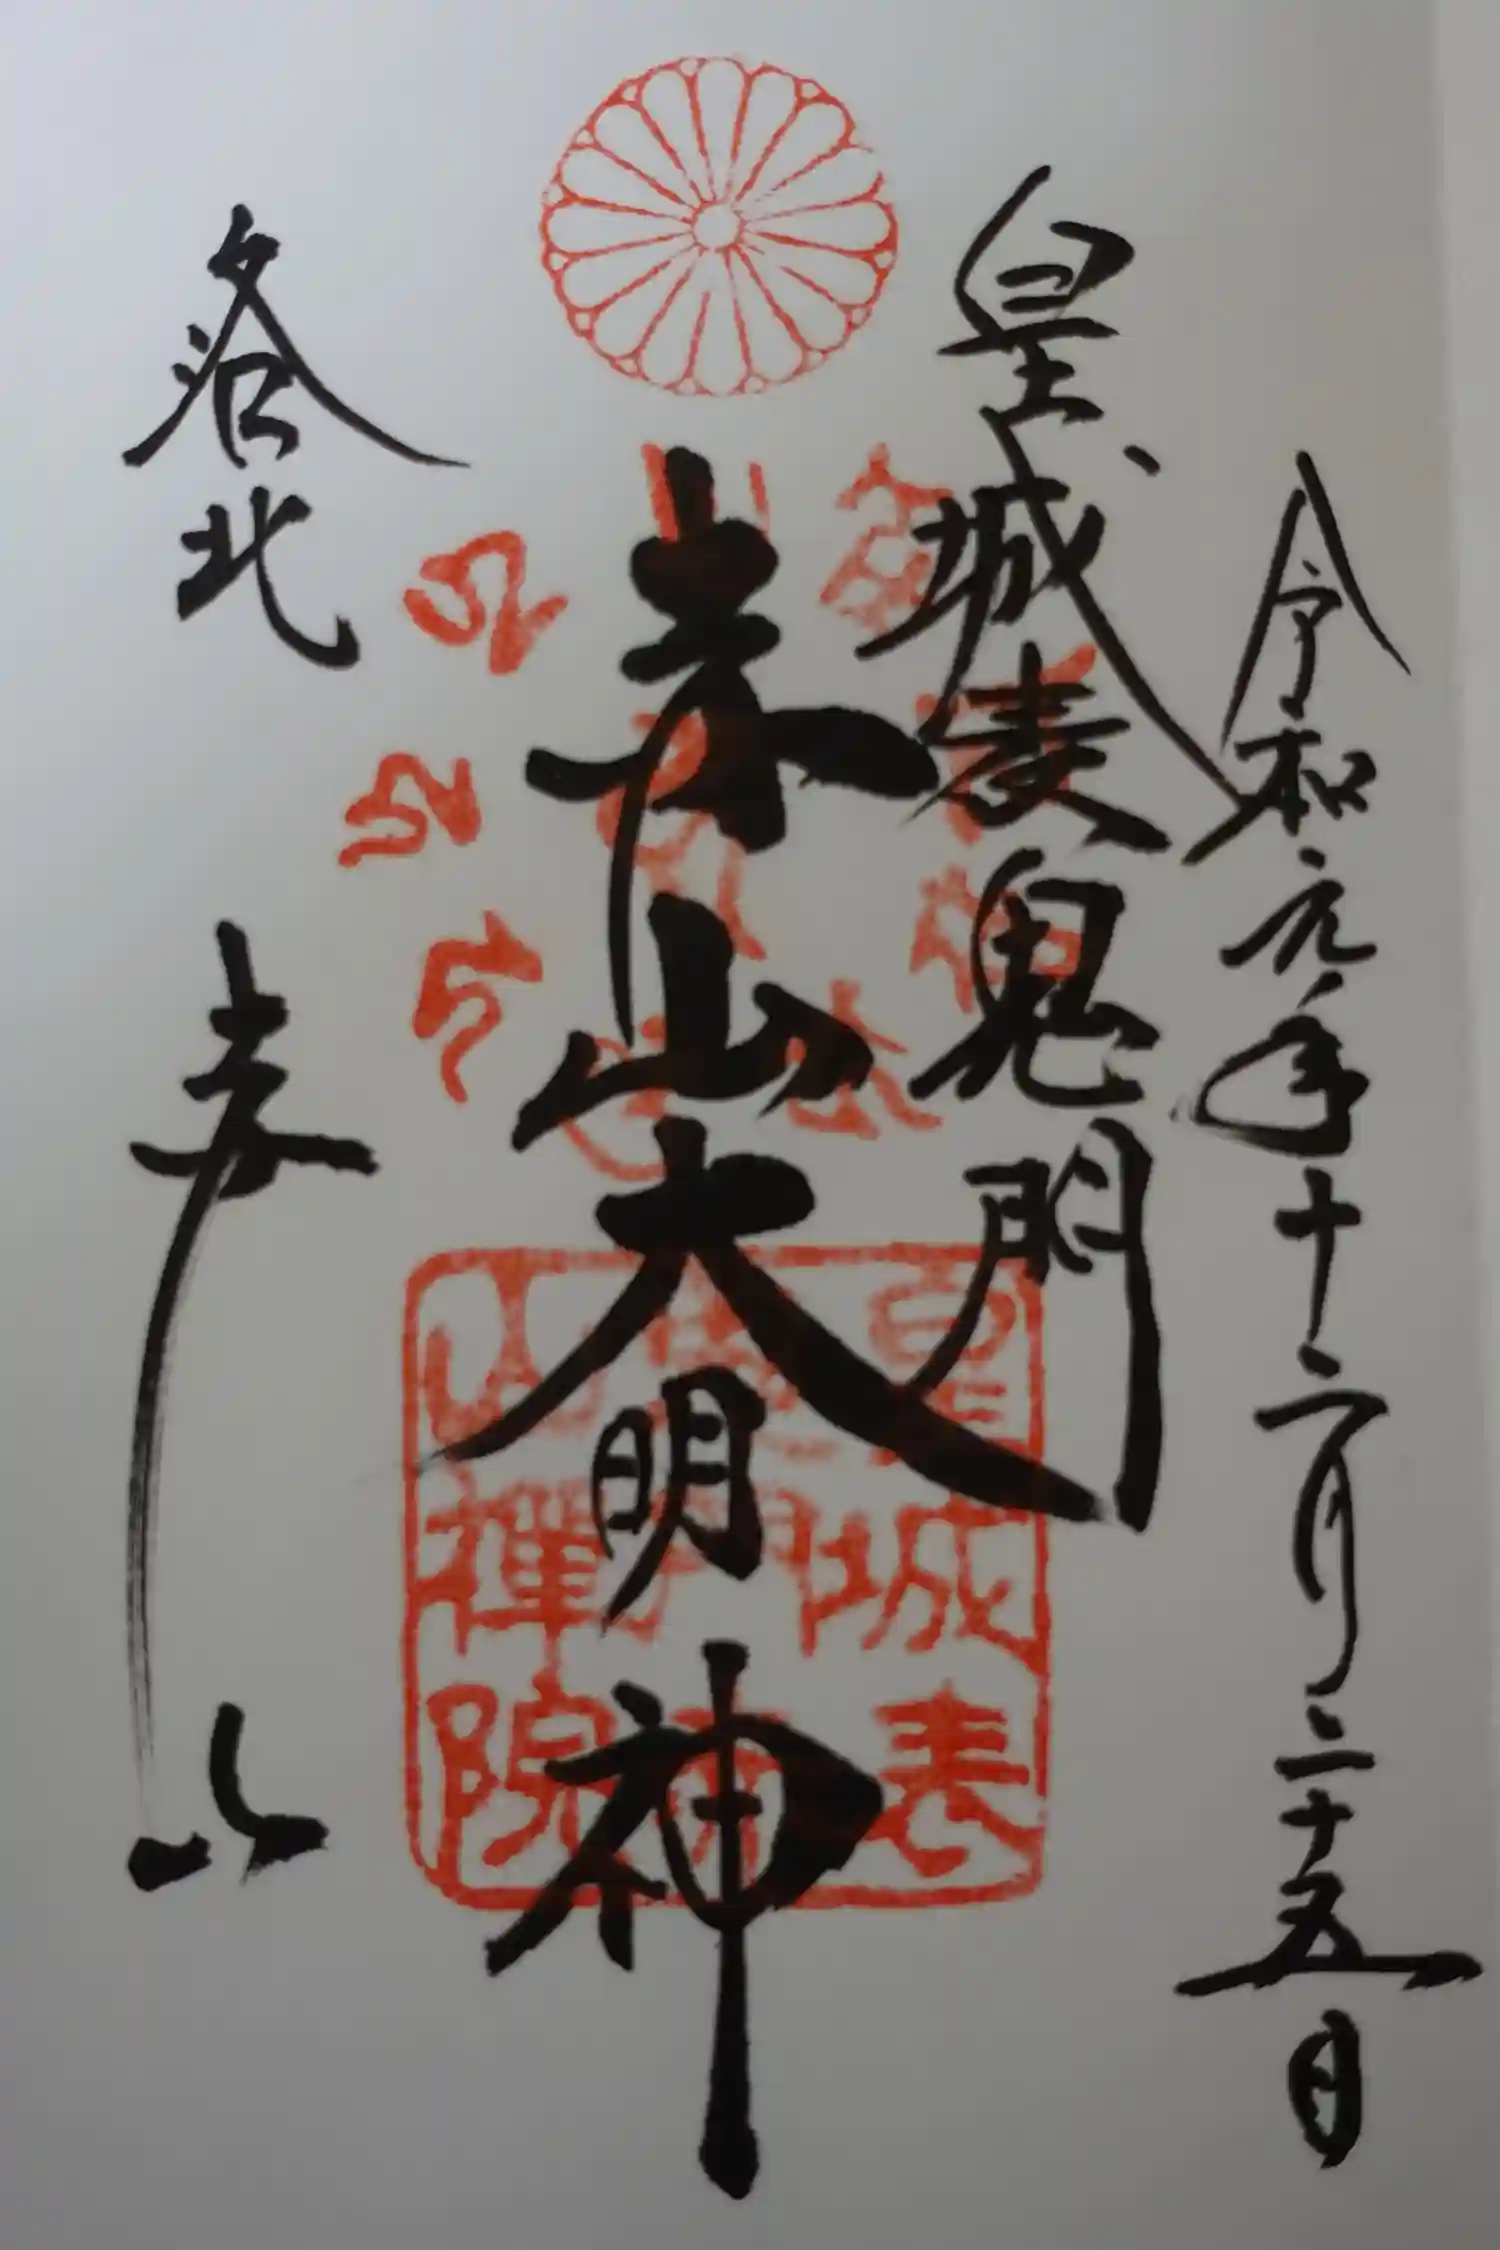 令和元年十二月二十五日
皇城表鬼門
赤山大明神
洛北 赤山
皇城表
鬼門赤
山禪院